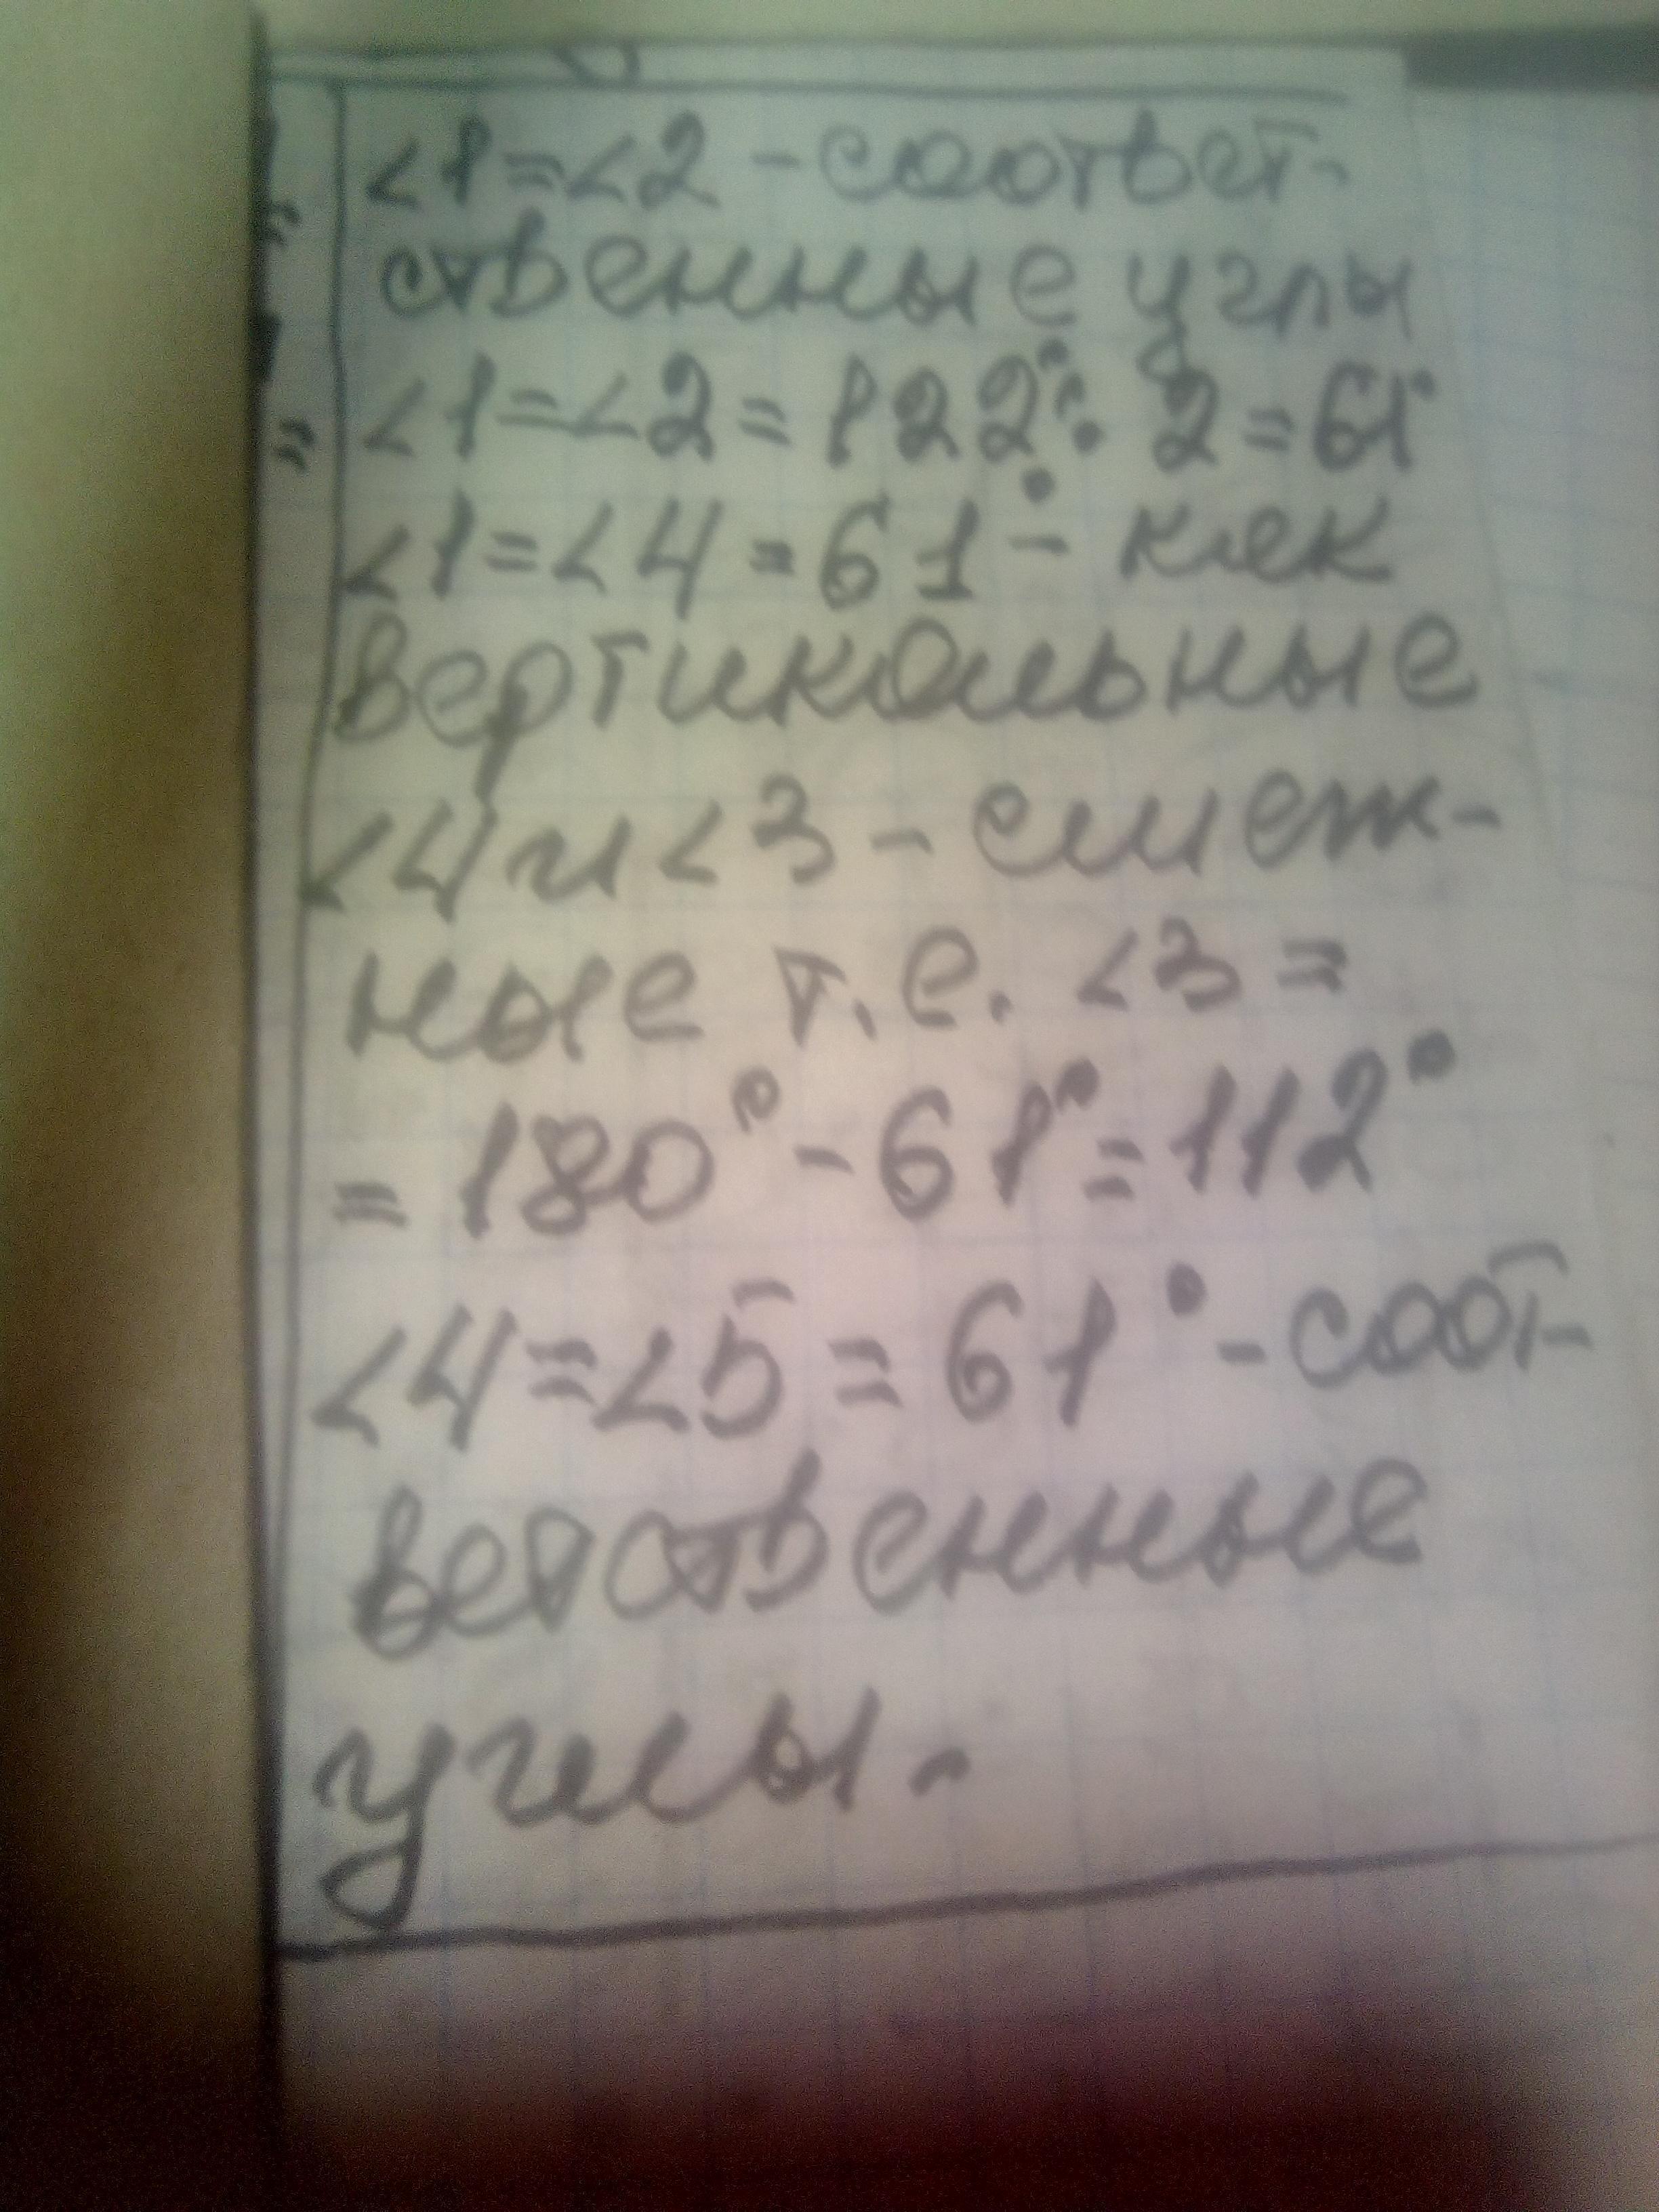 <1=<2 - соответ-
ственные углы
<1=<2=122°: 2=61°
<1=<4=61° - как
вертикальные
<4 и <3 - смеж-
ные т.е. <3 =
= 180° - 61° = 112°
<4=<5 = 61° - соот-
ветственные
углы.